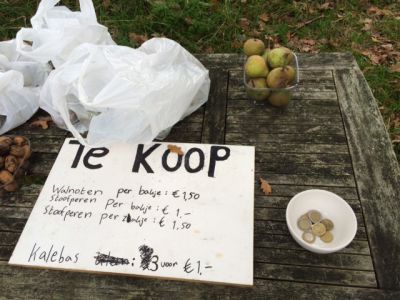 Te Koop
Walnoten per bakje: € 1,50
Stoofperen Per bakje: € 1.-
Stoofperen per zakje: € 1.50
Kalebas : 3 voor € 1.-